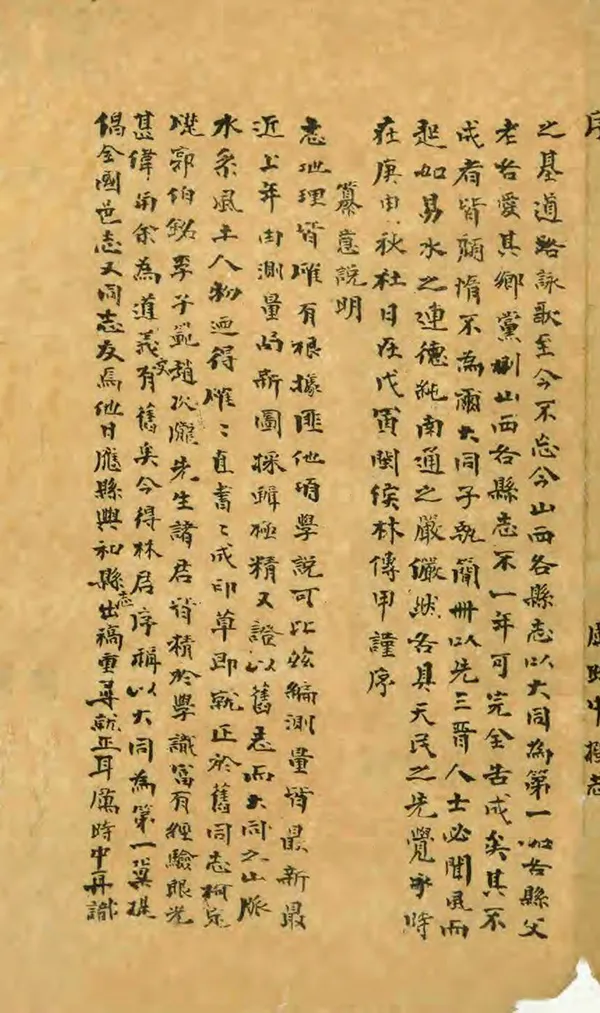 序
之基道路詠歌至今不忘今山西各縣志以大同為第一如各縣父
老各愛其鄉黨則山西各縣志不一年可完全告成矣其不
成者皆頑惰不為爾大同子執簡冊以先三晉人士必聞風而
起如易水之連德純南通之嚴儼然各具天民之先覺乎時
在庚申秋社日在戊寅閩侯林傳甲謹序
纂意說明
志地理皆確有根據匪他項學說可比茲編測量皆最新最
近上年由測量局新圖採輯極精又證以舊志而大同之山脈
水系風土人物迺得確〻直書〻成印草即就正於舊同志柯定
礎郭伯銘李子範趙次隴先生諸君皆精於學識富有經驗眼光
甚偉與余為道義文有舊矣今得林君序稱以大同為第一並提
倡全國邑志又同志友為他日應縣興和縣志出稿重尋就正耳厲時中再識
厲時中 志